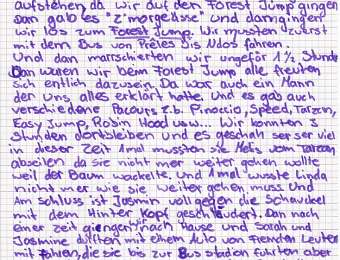 aufstehen da wir auf den Forest Jump gingen
Dan gab es "z'morgeässe" und dan gingen
wir los zum Forest Jump. Wir mussten zuerst
mit dem Bus von Prêles bis Nods fahren.
Und dan marrschierten wir ungeför 1½ Stunde
Dan waren wir beim Forest Jump alle freuten
sich entlich dazusein. Da war auch ein Mann
der uns alles erklärt hatte. Und es gab auch
verschiedene Pacours z.b. Pinocio, Speed, Tarzan,
Easy Jump, Robin Hood usw... Wir konnten 3
stunden dortbleiben und es geschah ser ser viel
in dieser Zeit 1mal mussten sie Melis vom Tarzan
abseilen da sie nicht mer weiter gehen wollte
weil der Baum wackelte, und 1mal wusste Linda
nicht mer wie sie weiter gehen muss und
Am schluss ist Jasmin voll gegen die Schaukel
mit dem Hinter Kopf geschläudert. Dan nach
einer zeit giengen wir nach Hause und Sarah und
Jasmine durften mit einem Auto von Fremden Leuten
mit fahren, die sie bis zur Bus stadion führten aber